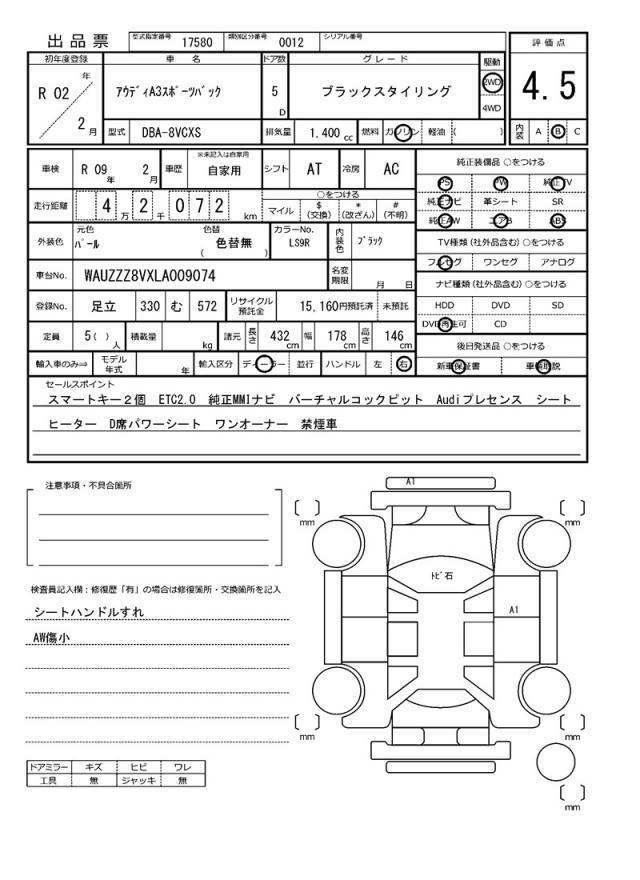 出品票 型式指定番号 17580 類別区分番号 0012 シリアル番号
初年度登録 車名 ドア数 グレード 駆動 評価点
R 02年 2月 アウディA3スポーツバック 5D ブラックスタイリング 2WD 4WD 4.5
型式 DBA-8VCXS 排気量 1.400cc 燃料 ガソリン 軽油 ( ) 内装 A B C
車検 R 09年 2月 車歴 ※未記入は自家用 自家用 シフト AT 冷房 AC 純正装備品 ○をつける
PS PW 純正TV
走行距離 4万2千072km ○をつける 純正ナビ 革シート SR
マイル $(交換) *(改ざん) #(不明) 純正AW エアB ABS
外装色 元色 パール 色替 ( 色替無 ) カラーNo. LS9R 内装色 ブラック TV種類(社外品含む)○をつける
フルセグ ワンセグ アナログ
車台No. WAUZZZ8VXLA009074 名変期限 月 日 ナビ種類(社外品含む)○をつける
登録No. 足立 330 む 572 リサイクル預託金 15,160円預託済 未預託 HDD DVD SD
DVD再生可 CD
定員 5( )人 積載量 kg 諸元 長さ 432cm 幅 178cm 高さ 146cm 後日発送品 ○をつける
輸入車のみ⇒ モデル年式 年 輸入区分 ディーラー 並行 ハンドル 左 右 新車保証書 車輌取説
セールスポイント
スマートキー2個 ETC2.0 純正MMIナビ バーチャルコックピット Audiプレセンス シート
ヒーター D席パワーシート ワンオーナー 禁煙車
注意事項・不具合箇所
A1
mm mm
トビ石
検査員記入欄:修復歴「有」の場合は修復箇所・交換箇所を記入
シートハンドルすれ
A1
AW傷小
mm mm
ドアミラー キズ ヒビ ワレ
工具 無 ジャッキ 無
mm